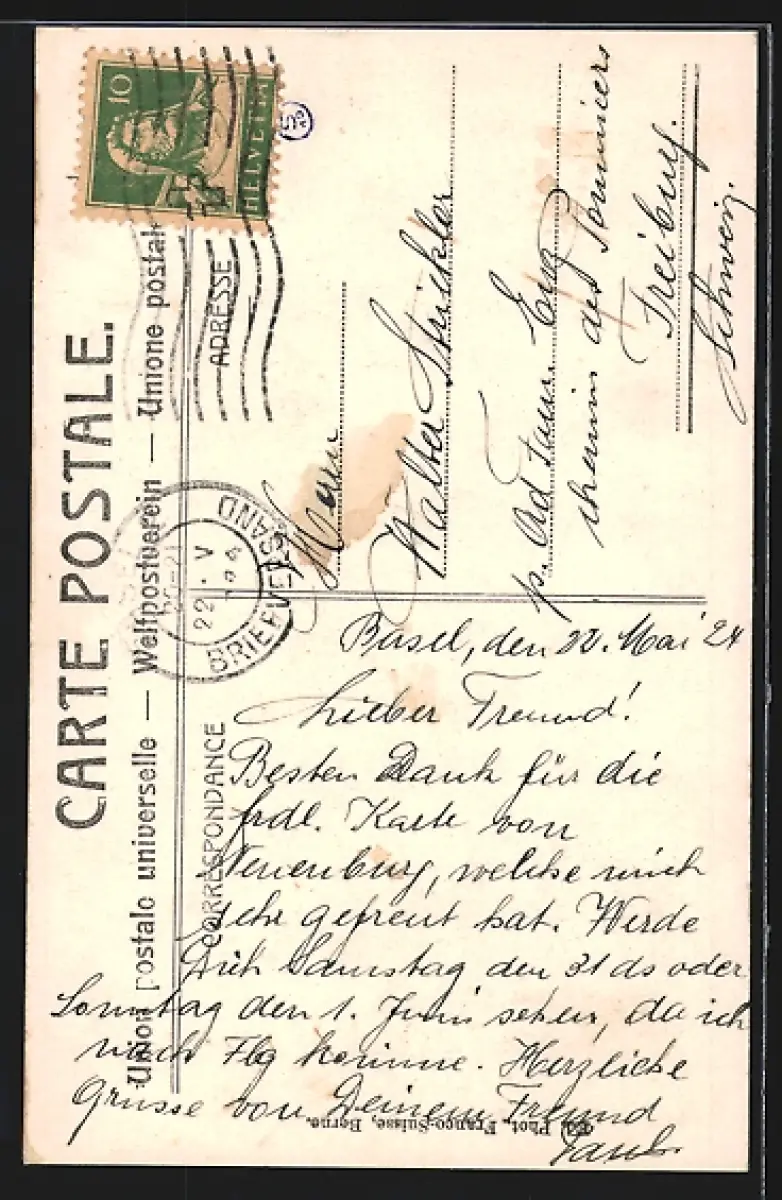 CARTE POSTALE.
Union postale universelle — Weltpostverein — Unione postale
CORRESPONDANCE
ADRESSE
10
HELVETIA
22 · V
BRIEFVERSAND
Herrn
Walter Strickler
p. Ad.
chemin des Pommiers
Freiburg.
Schweiz.
Basel, den 22. Mai 24
Lieber Freund!
Besten Dank für die
frdl. Karte von
Neuenburg, welche mich
sehr gefreut hat. Werde
Dich Samstag den 31 ds oder
Sonntag den 1. Juni sehen, da ich
nach Fbg komme. Herzliche
Grüsse von Deinem Freund
Phot. Franco-Suisse, Berne.